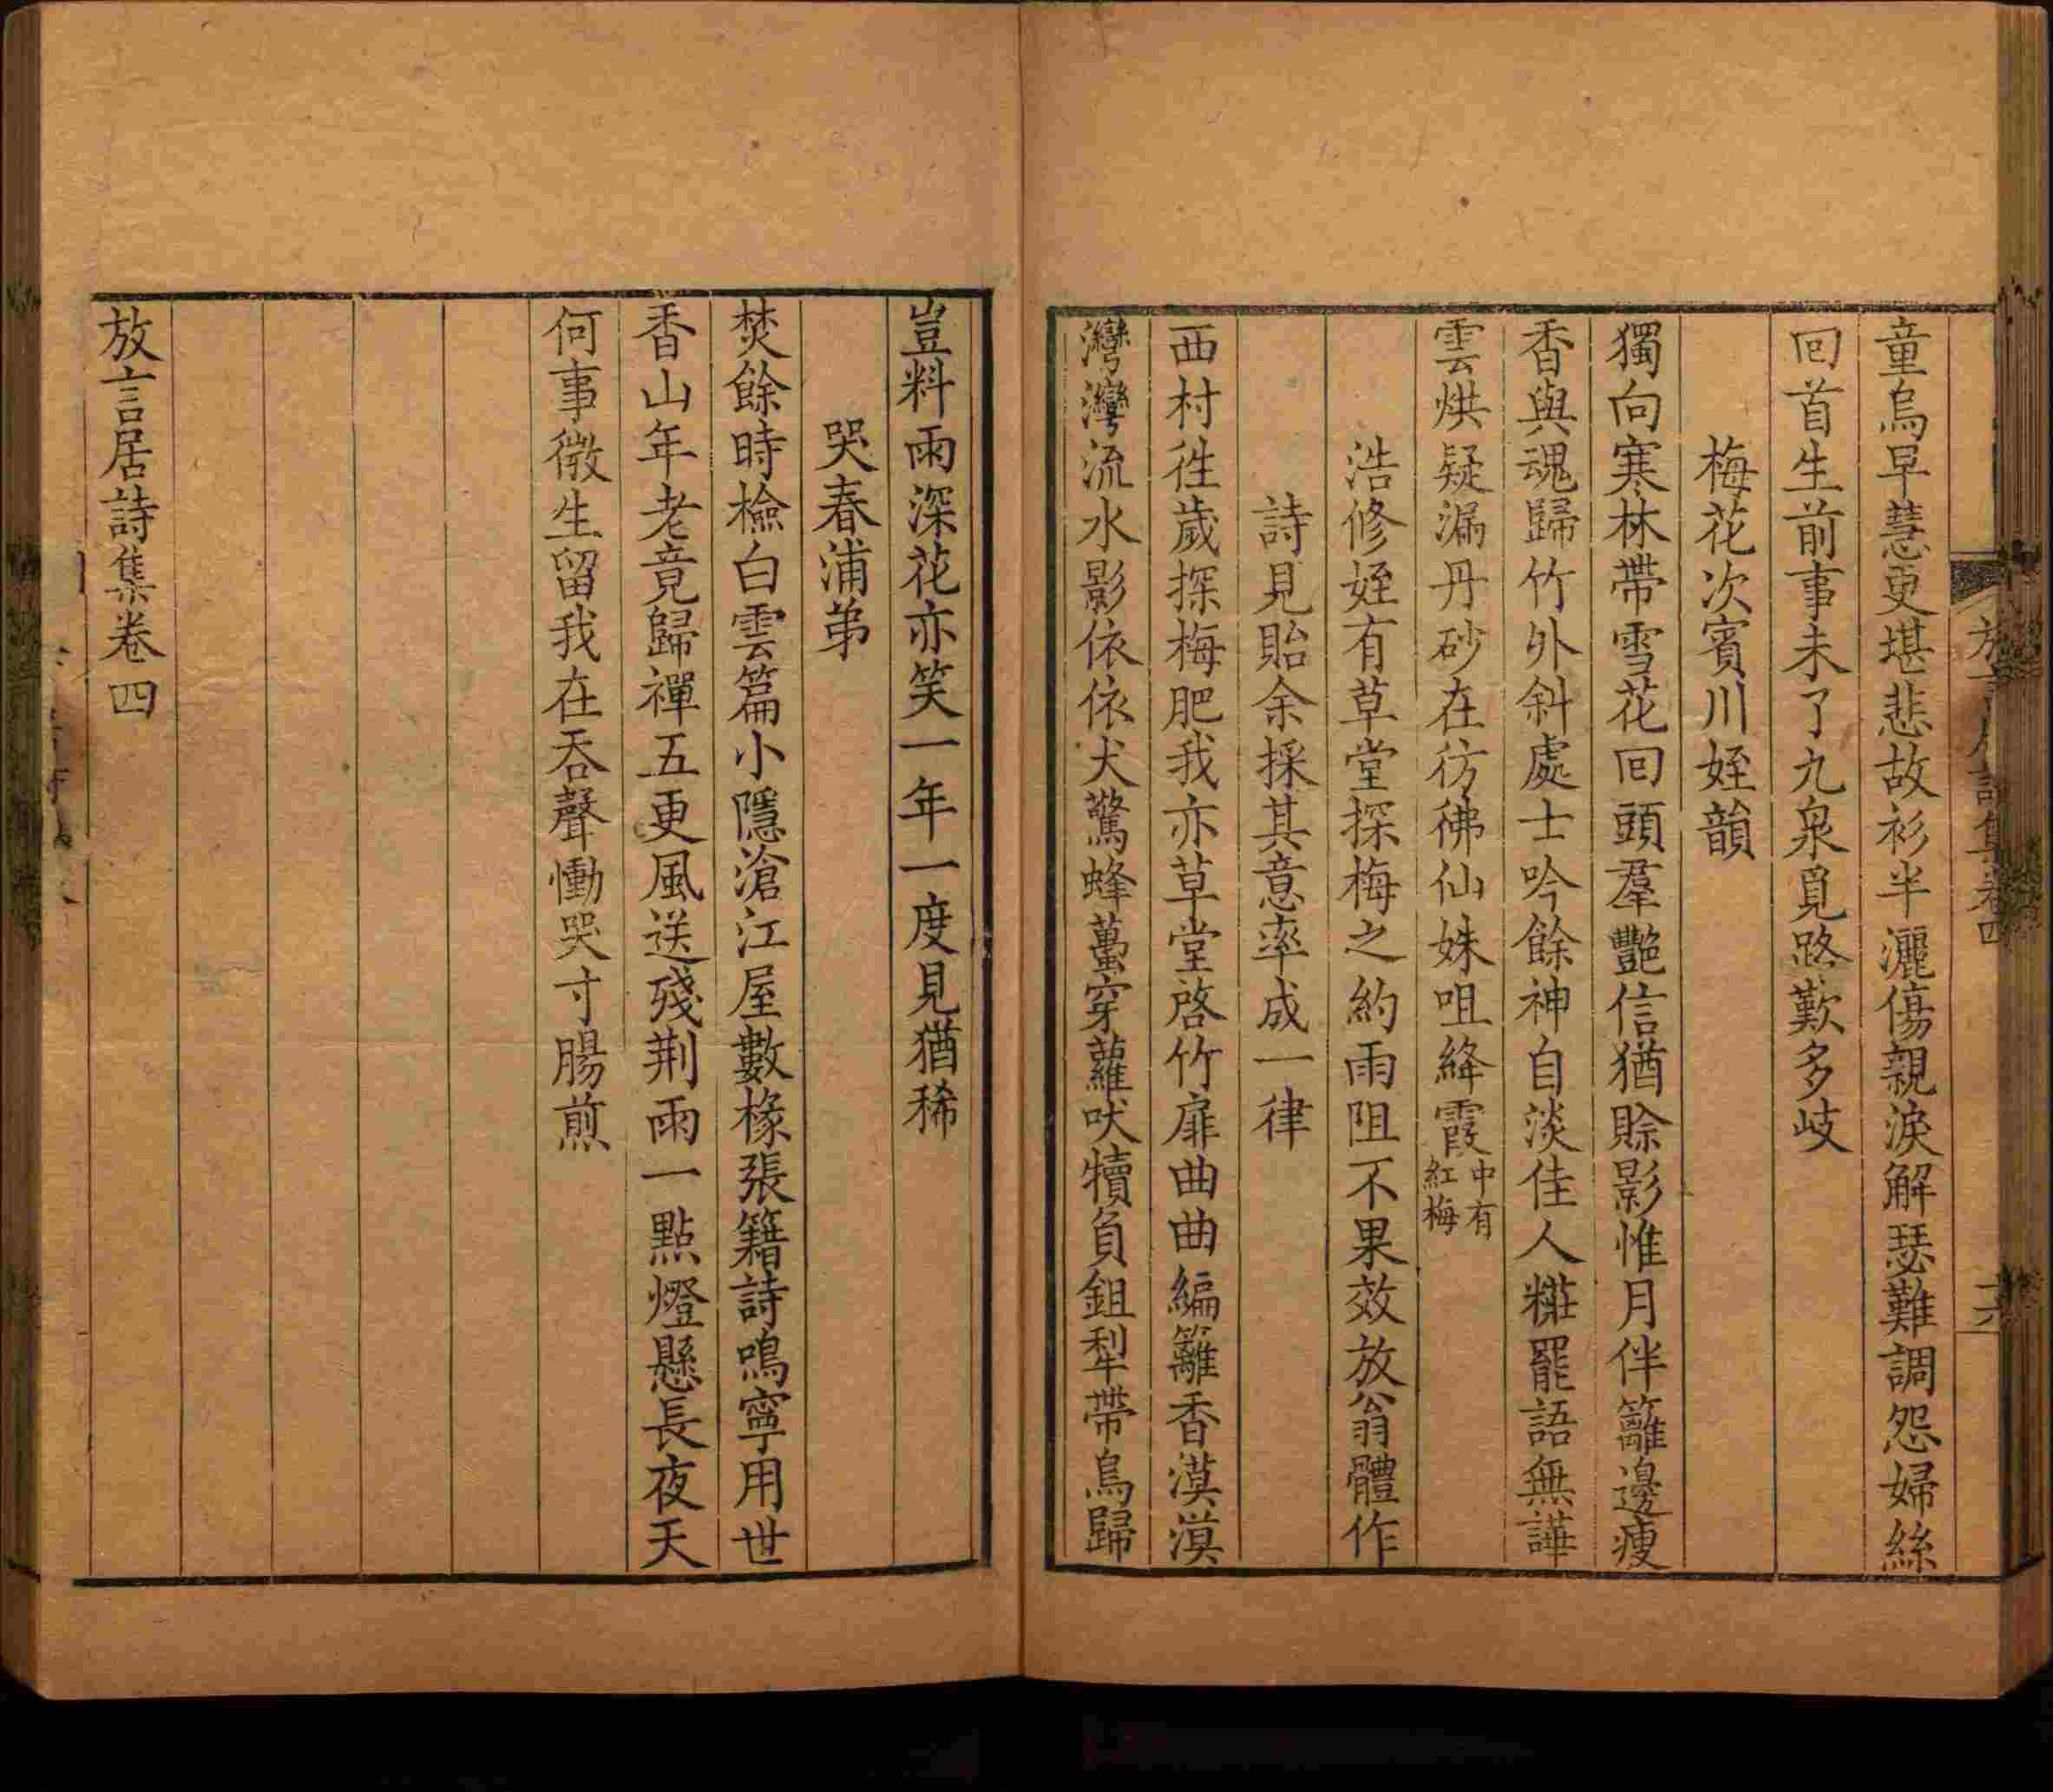 童烏早慧更堪悲故衫半灑傷親淚解瑟難調怨婦絲
回首生前事未了九泉覓路歎多岐
梅花次賓川姪韻
獨向寒林帶雪花回頭羣艷信猶賒影惟月伴籬邊瘦
香與魂歸竹外斜處士吟餘神自淡佳人糚罷語無譁
雲烘疑漏丹砂在彷彿仙姝咀絳霞中有紅梅
浩修姪有草堂探梅之約雨阻不果效放翁體作
詩見貽余採其意率成一律
西村徃歲探梅肥我亦草堂啓竹扉曲曲編籬香漠漠
灣灣流水影依依犬驚蜂蠆穿蘿吠犢負鉏犁帶鳥歸
放言居詩集卷四
十六
豈料雨深花亦笑一年一度見猶稀
哭春浦弟
焚餘時檢白雲篇小隱滄江屋數椽張籍詩鳴寧用世
香山年老竟歸禪五更風送殘荆雨一點燈懸長夜天
何事微生留我在吞聲慟哭寸腸煎
放言居詩集卷四